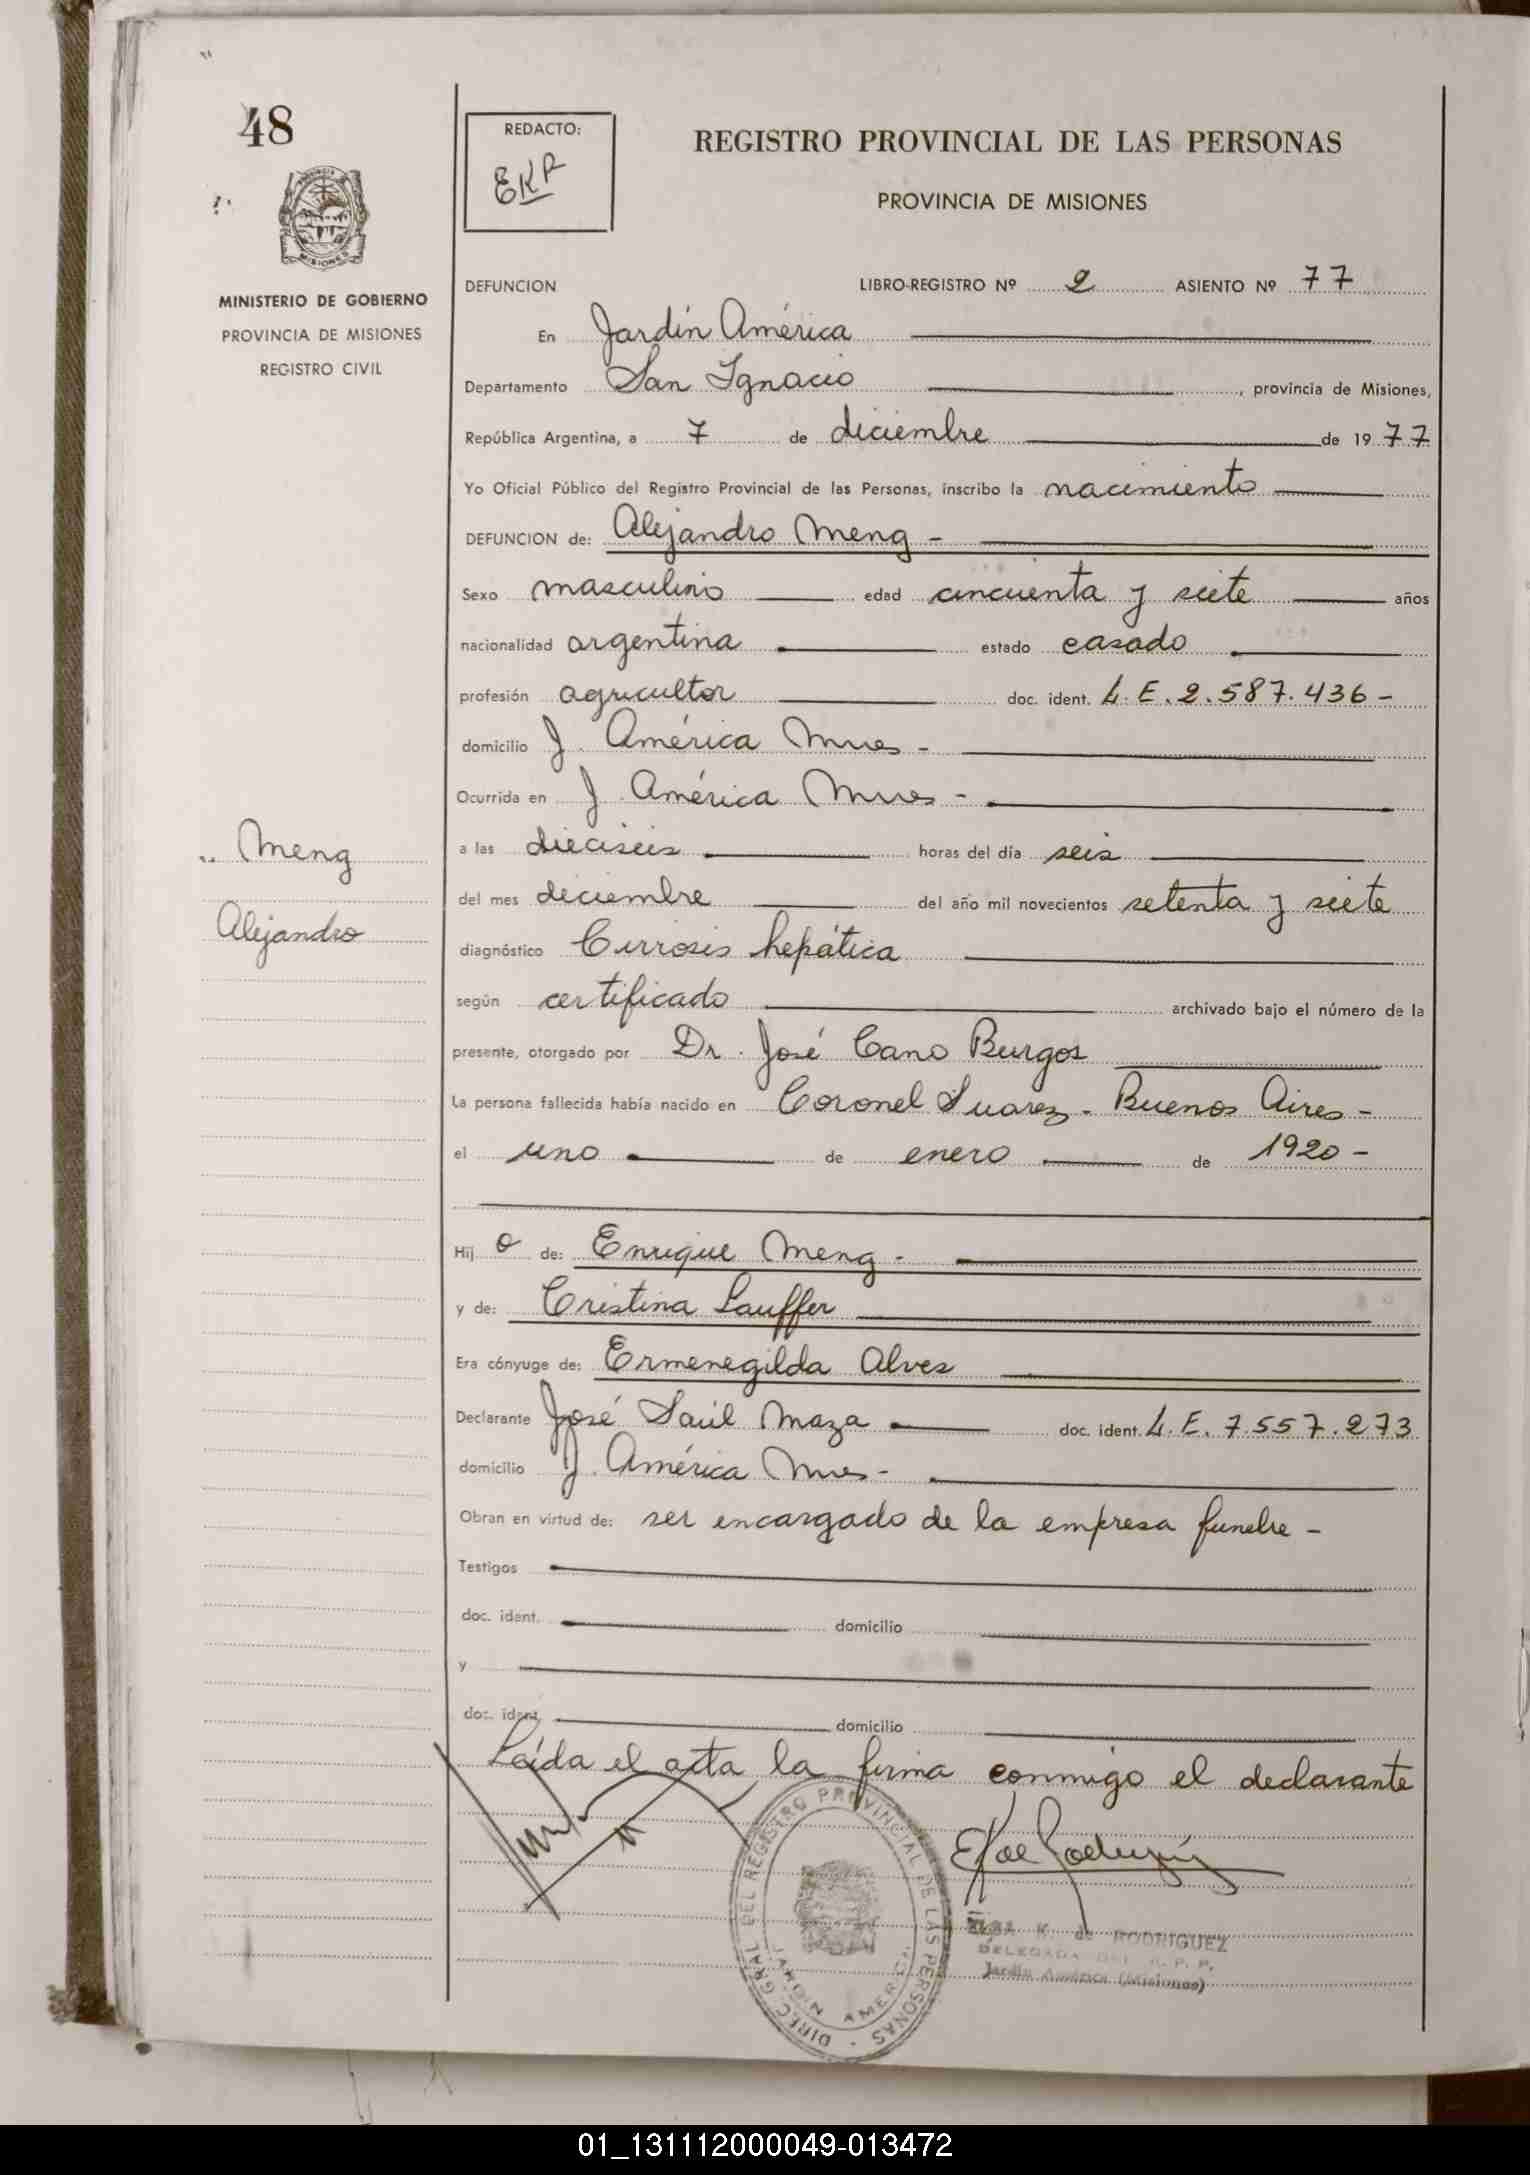 48
REDACTO:
EKR
REGISTRO PROVINCIAL DE LAS PERSONAS
PROVINCIA DE MISIONES
MISIONES
MINISTERIO DE GOBIERNO
PROVINCIA DE MISIONES
REGISTRO CIVIL
DEFUNCION LIBRO-REGISTRO Nº 2 ASIENTO Nº 77
En Jardín América
Departamento San Ignacio, provincia de Misiones,
República Argentina, a 7 de diciembre de 1977
Yo Oficial Público del Registro Provincial de las Personas, inscribo la nacimiento
DEFUNCION de: Alejandro Meng -
Sexo masculino edad cincuenta y siete años
nacionalidad argentina estado casado
profesión agricultor doc. ident. L.E. 2.587.436 -
domicilio J. América Mnes -
Ocurrida en J. América Mnes -
Meng
Alejandro
a las dieciseis horas del día seis
del mes diciembre del año mil novecientos setenta y siete
diagnóstico Cirrosis hepática
según certificado archivado bajo el número de la
presente, otorgado por Dr. José Cano Burgos
La persona fallecida había nacido en Coronel Suarez - Buenos Aires -
el uno de enero de 1920 -
Hij o de: Enrique Meng -
y de: Cristina Lauffer
Era cónyuge de: Ermenegilda Alves
Declarante José Saúl Maza doc. ident. L.E. 7.557.273
domicilio J. América Mnes -
Obran en virtud de: ser encargado de la empresa funebre -
Testigos
doc. ident. domicilio
y
doc. ident. domicilio
Leída el acta la firma conmigo el declarante
DIREC. GRAL. DEL REGISTRO PROVINCIAL DE LAS PERSONAS
JARDIN AMERICA
ELSA K. de RODRIGUEZ
DELEGADA DEL R. P. P.
Jardín América (Misiones)
01_131112000049-013472